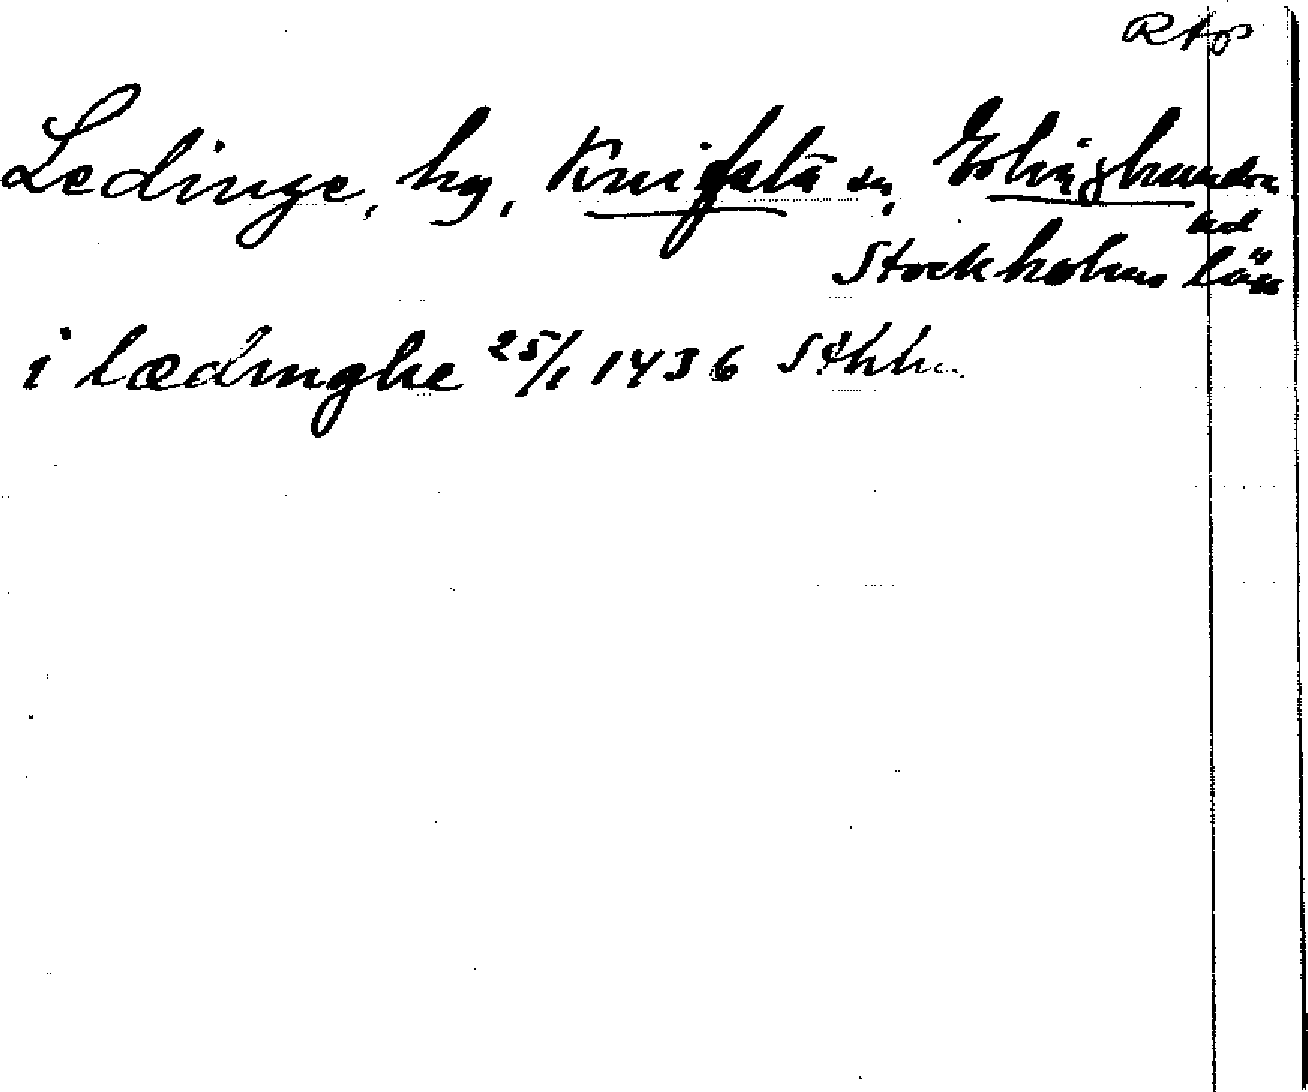 Rtp
Ledinge, by, Knifsta sn, Erlinghundra
hd
Stockholms län
i lædinghe 25/1 1436 Sthlm